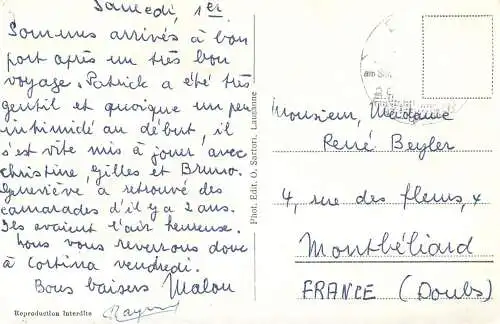 Samedi, 1er
Sommes arrivés à bon
port après un très bon
voyage. Patrick a été très
gentil et quoique un peu
intimidé au début, il
s'est vite mis à jouer avec
christine Gilles et Bruno.
Geneviève a retrouvé des
camarades d'il y a 2 ans.
Ils avaient l'air heureuse.
Nous vous reverrons donc
à Cortina vendredi.
Bons baisers Malou
Reproduction Interdite
Phot. Edit. O. Sartori, Lausanne
Monsieur, Madame
René Beyler
4, rue des fleurs,
Montbéliard
FRANCE (Doubs)